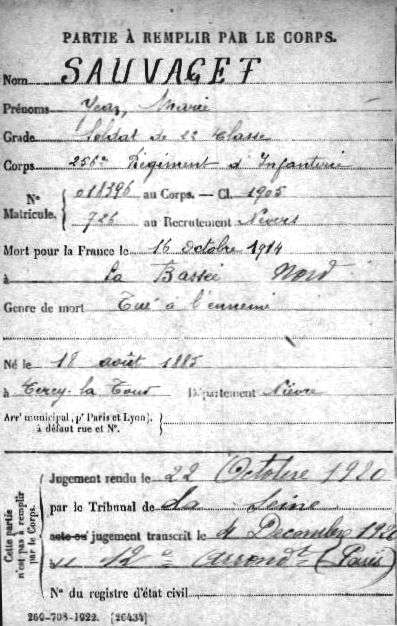 PARTIE À REMPLIR PAR LE CORPS.
Nom SAUVAGET
Prénoms Jean, Marie
Grade Soldat de 2e Classe
Corps 256e Régiment d'Infanterie
N° Matricule. { 011396 au Corps. — Cl. 1905
726 au Recrutement Nevers
Mort pour la France le 16 octobre 1914
à La Bassée Nord
Genre de mort Tué à l'ennemi
Né le 18 août 1885
à Cercy-la-Tour Département Nièvre
Arrt municipal (pr Paris et Lyon),
à défaut rue et N°.
Cette partie n'est pas à remplir par le Corps.
Jugement rendu le 22 Octobre 1920
par le Tribunal de La Seine
acte ou jugement transcrit le 4 Decembre 1920
12e arrondt (Paris)
N° du registre d'état civil
260-708-1922. [26434]